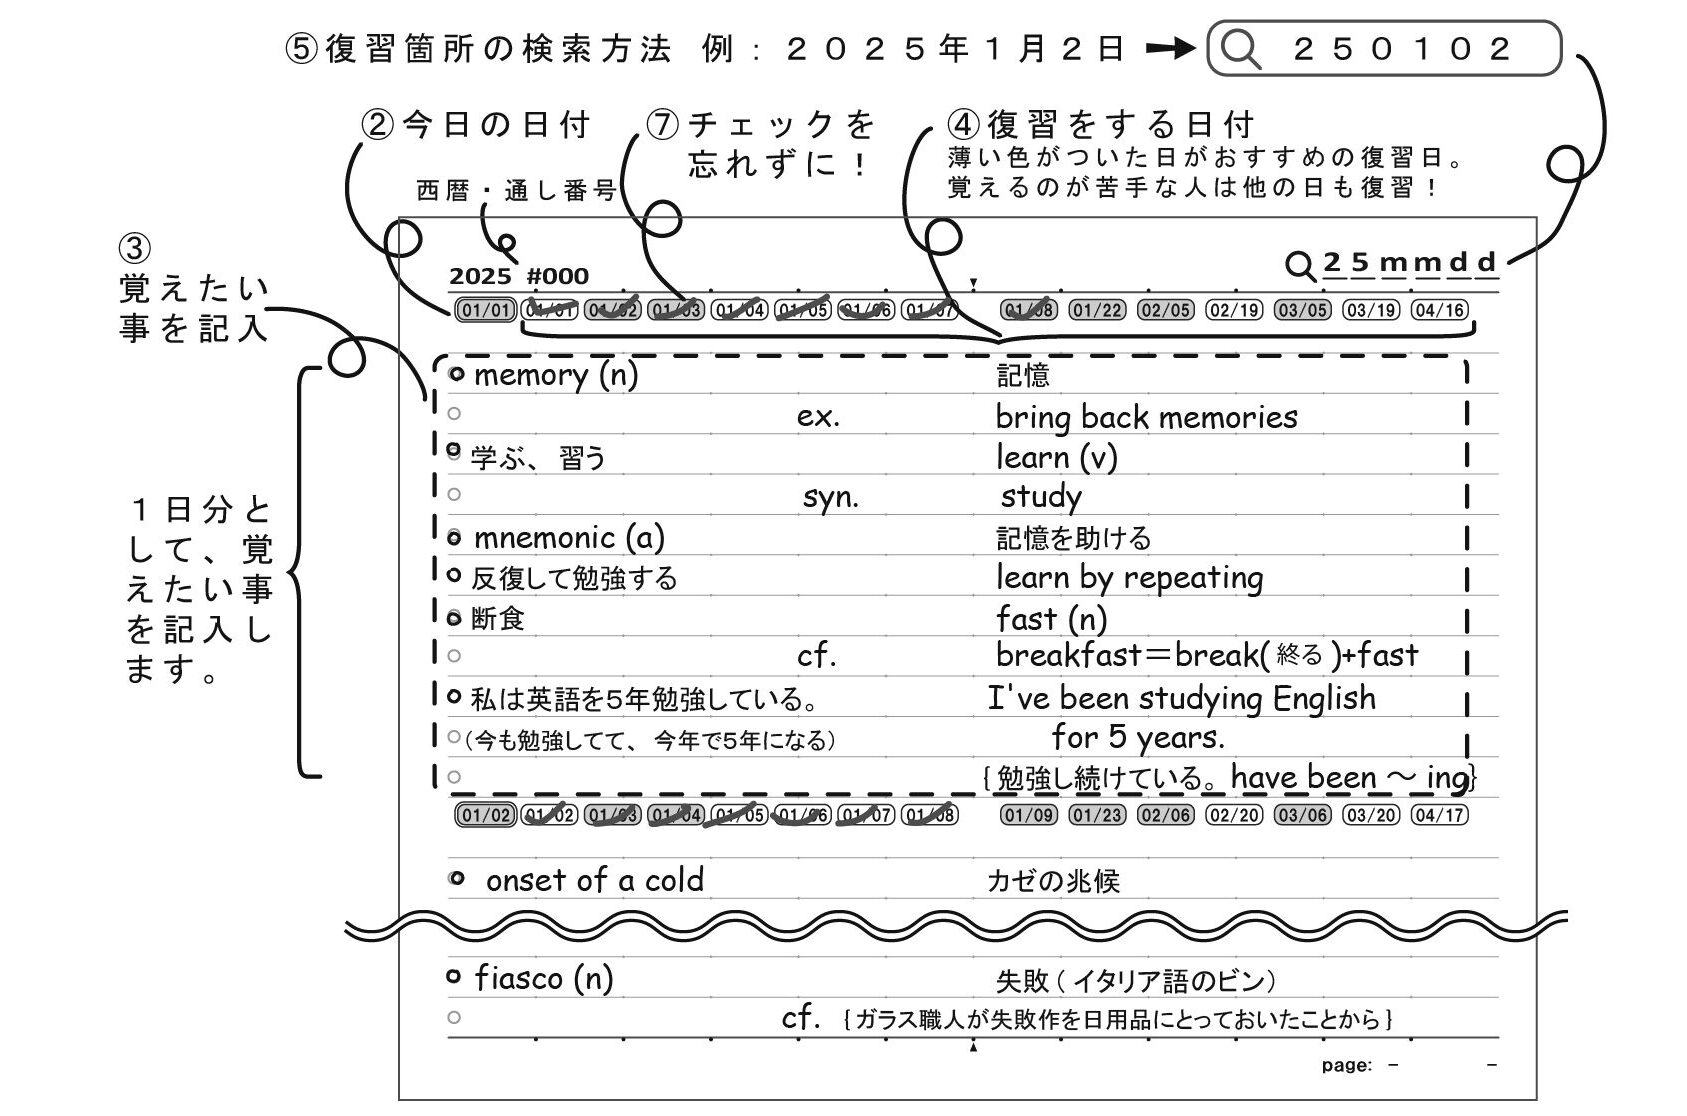 ⑤復習箇所の検索方法 例：２０２５年１月２日 ➡ ２５０１０２
②今日の日付
⑦チェックを
忘れずに！
④復習をする日付
薄い色がついた日がおすすめの復習日。
覚えるのが苦手な人は他の日も復習！
西暦・通し番号
③
覚えたい
事を記入
2025 #000
25mmdd
01/01 01/01 01/02 01/03 01/04 01/05 01/06 01/07 01/08 01/22 02/05 02/19 03/05 03/19 04/16
memory (n) 記憶
ex. bring back memories
学ぶ、習う learn (v)
syn. study
mnemonic (a) 記憶を助ける
反復して勉強する learn by repeating
断食 fast (n)
cf. breakfast＝break(終る)+fast
私は英語を５年勉強している。 I've been studying English
（今も勉強してて、今年で５年になる） for 5 years.
{勉強し続けている。have been 〜 ing}
１日分と
して、覚
えたい事
を記入し
ます。
01/02 01/02 01/03 01/04 01/05 01/06 01/07 01/08 01/09 01/23 02/06 02/20 03/06 03/20 04/17
onset of a cold カゼの兆候
fiasco (n) 失敗（イタリア語のビン）
cf. {ガラス職人が失敗作を日用品にとっておいたことから}
page: – –